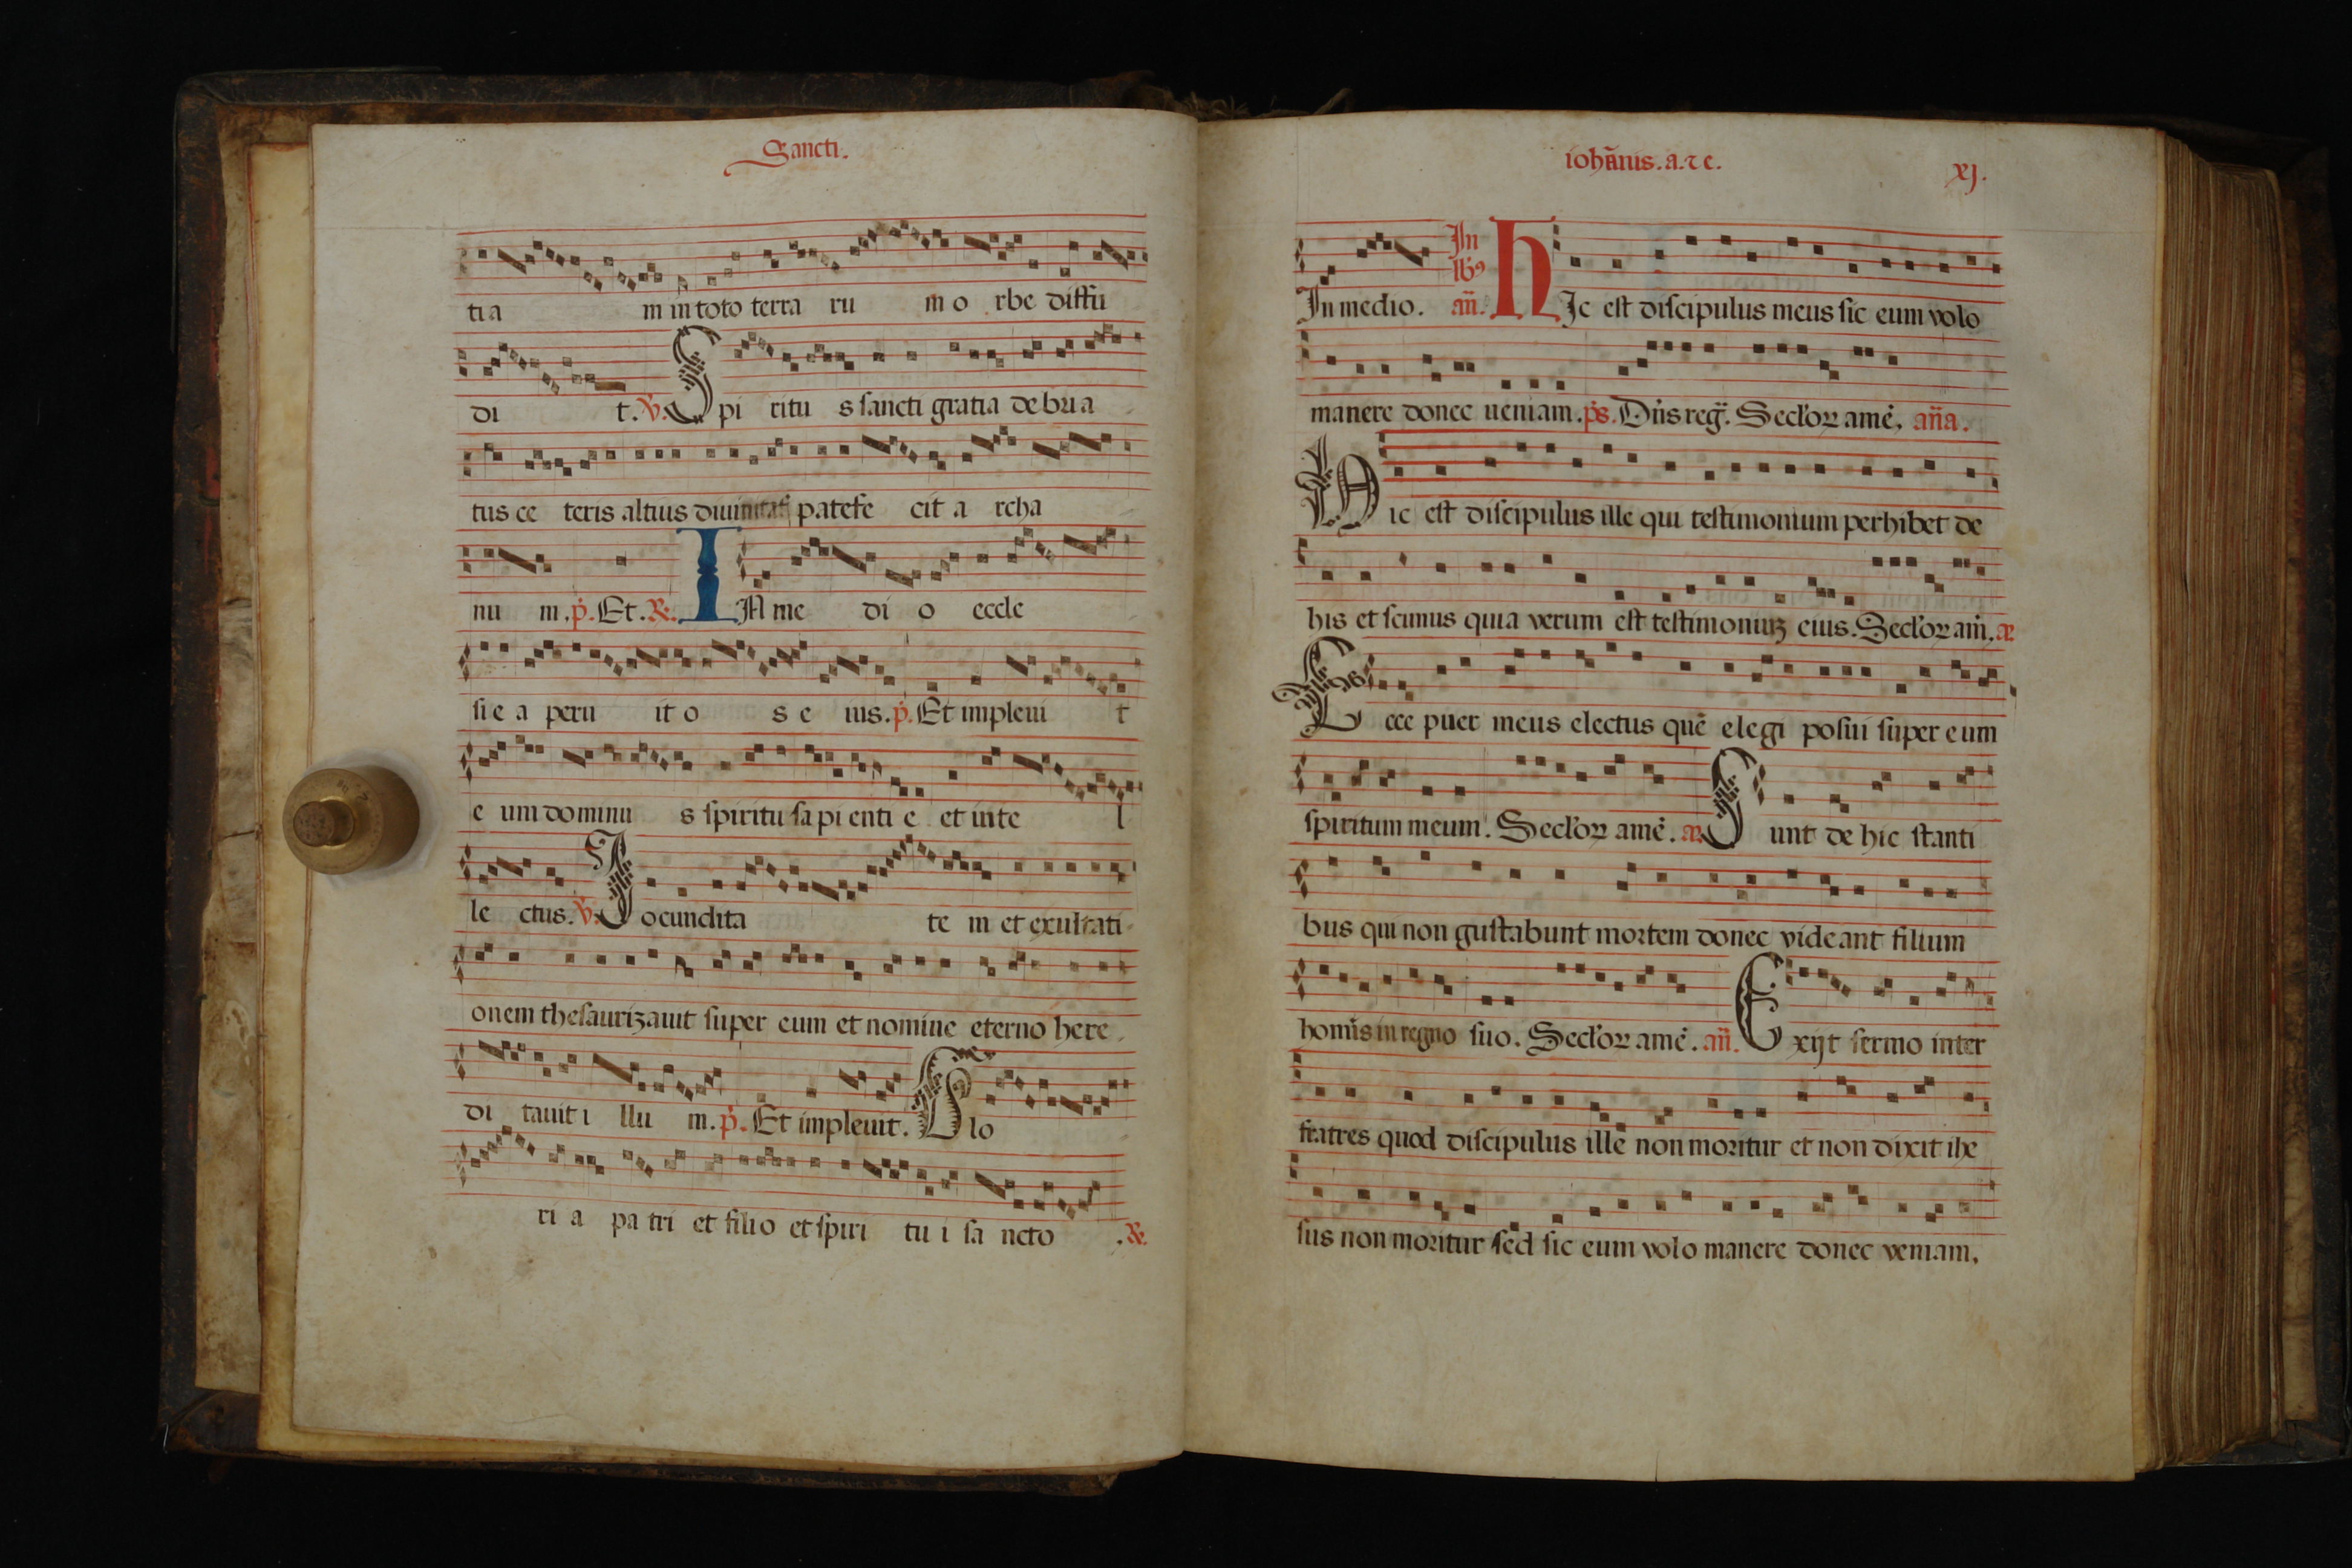 Sancti.
tia m in toto terra ru m o rbe diffu
di t. ℣. Spi ritu s sancti gratia debria
tus ce teris altius diuinitatis patefe cit a rcha
nu m. p̄. Et. ℟. IN me di o eccle
sie a peru it o s e ius. p̄. Et impleui t
e um dominu s spiritu sapienti e et inte l
le ctus. ℣. Jocundita te m et exultati
onem thesaurizauit super eum et nomine eterno here
di tauit i llu m. p̄. Et impleuit. Glo
ri a pa tri et filio et spiri tu i sa ncto . ℟.
iohãnis. a. ⁊ e. xj.
In medio. In lꝭ añ. HIc est discipulus meus sic eum volo
manere donec ueniam. p̄s. Dñs reg̃. Seclorꝝ amẽ. aña.
Hic est discipulus ille qui testimonium perhibet de
his et scimus quia verum est testimoniuꝫ eius. Seclorꝝ am̃. añ
Ecce puer meus electus quẽ elegi posui super eum
spiritum meum. Seclorꝝ amẽ. añ Sunt de hic stanti
bus qui non gustabunt mortem donec videant filium
homĩs in regno suo. Seclorꝝ amẽ. añ. Exijt sermo inter
fratres quod discipulus ille non moritur et non dixit ihe
sus non moritur sed sic eum volo manere donec veniam.